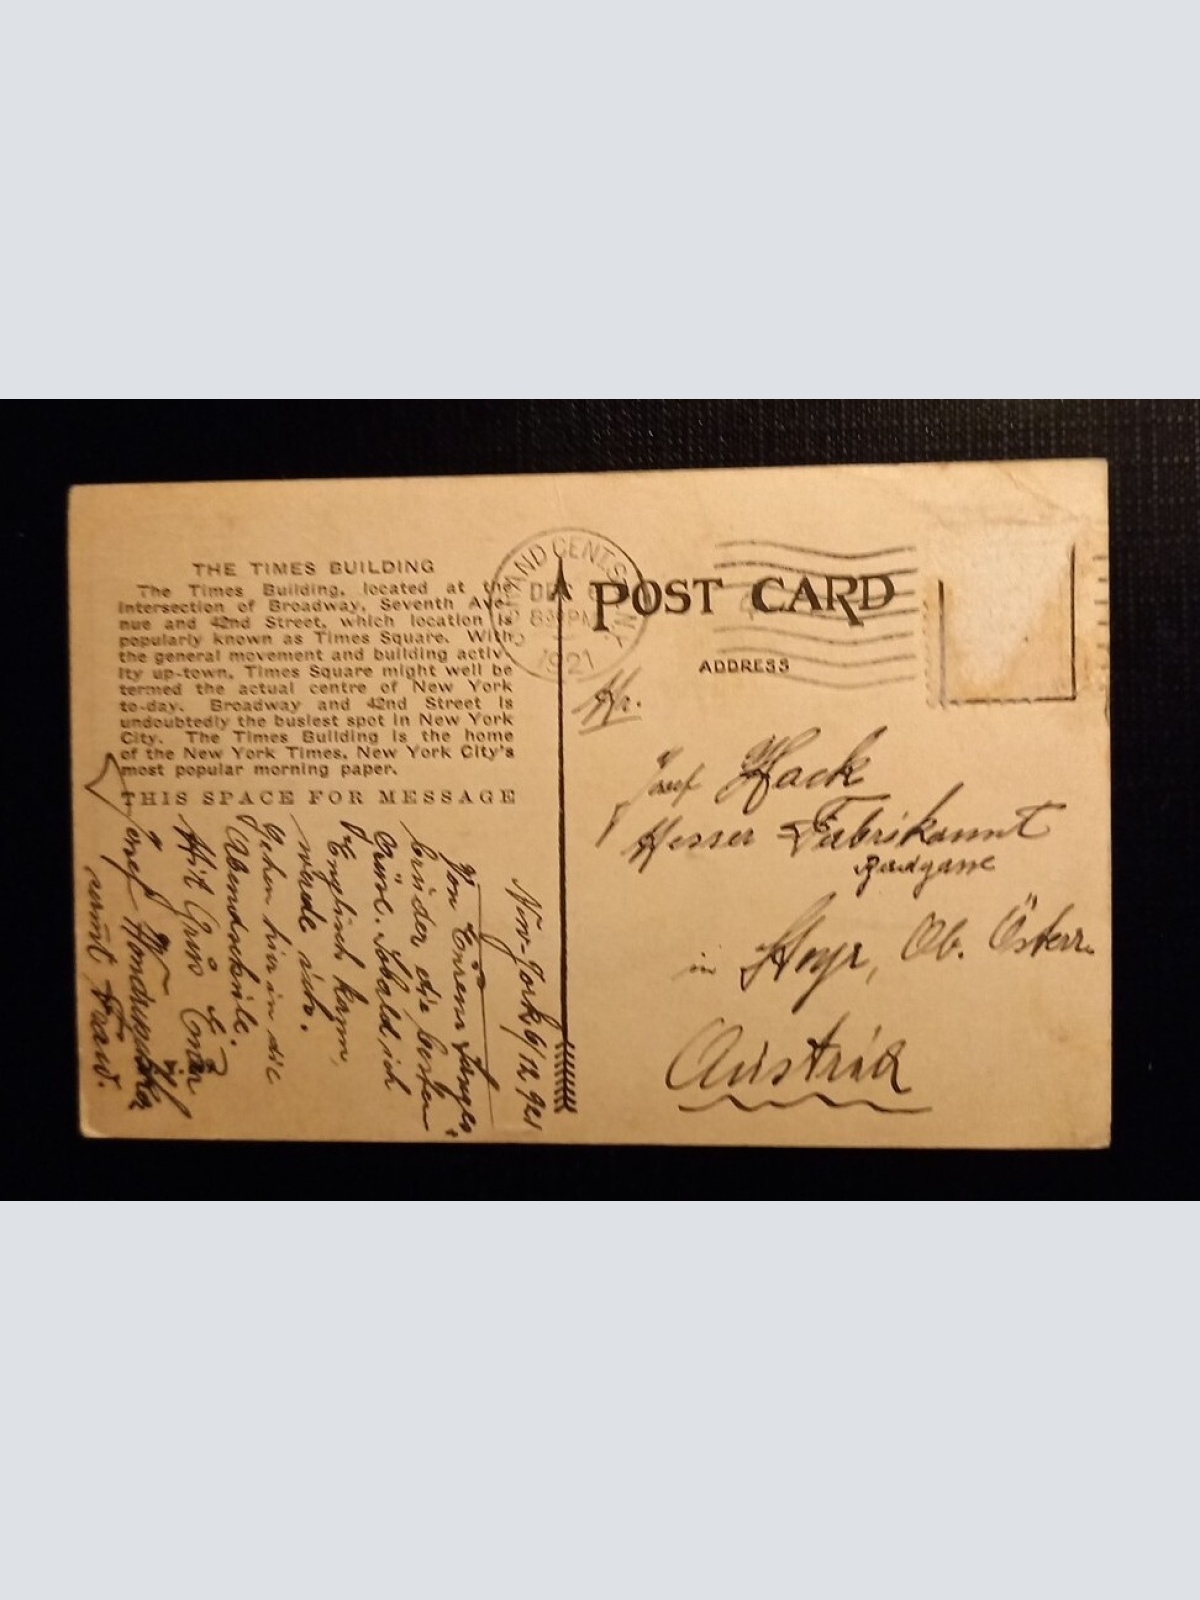 THE TIMES BUILDING
The Times Building, located at the
intersection of Broadway, Seventh Ave-
nue and 42nd Street, which location is
popularly known as Times Square. With
the general movement and building activ-
ity up-town, Times Square might well be
termed the actual centre of New York
to-day. Broadway and 42nd Street is
undoubtedly the busiest spot in New York
City. The Times Building is the home
of the New York Times, New York City's
most popular morning paper.
THIS SPACE FOR MESSAGE
New-York 6/12 921
Von Eurem Sanges-
bruder die besten
Grüße. Sobald ich
Englisch kann,
werde ich
gehen hier in die
Abendschule.
Mit Gruß
Josef
samt Frau.
GRAND CENT. STA.
DEC 6
8 30 PM
1921
N.Y.
POST CARD
ADDRESS
Hr.
Josef Hack
Messer Fabrikannt
in Steyr, Ob. Österr.
Austria